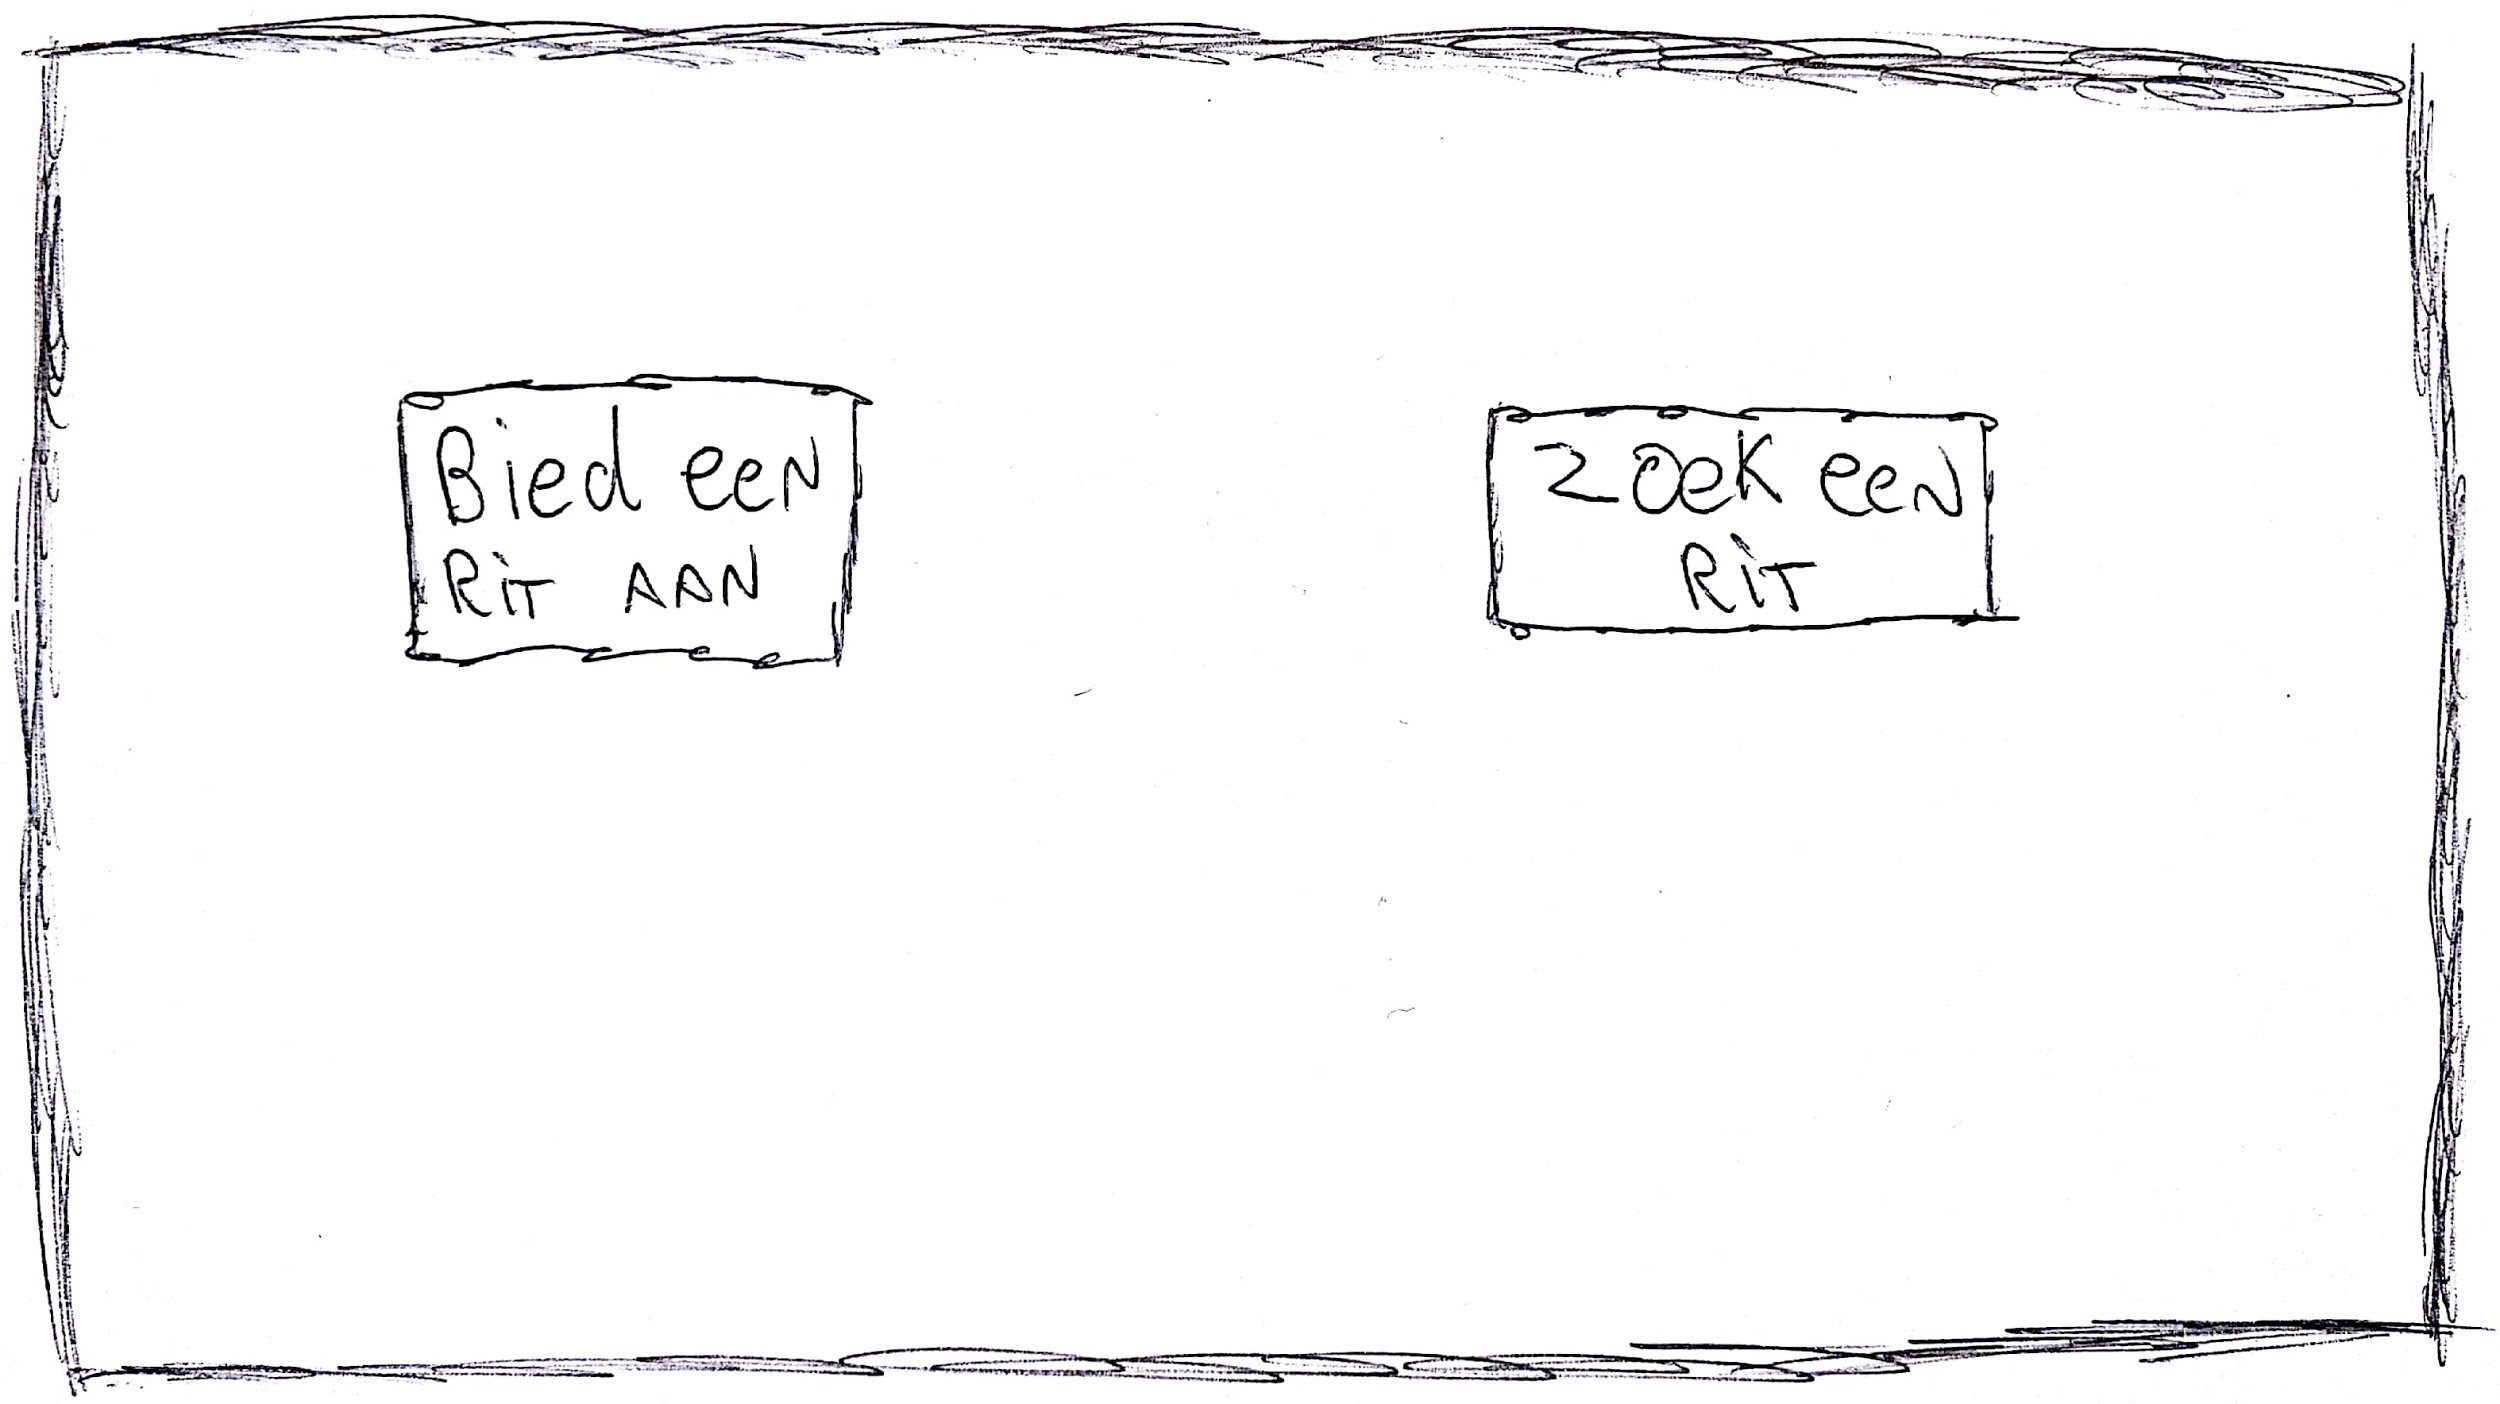 Bied een
Rit AAN
Zoek een
Rit